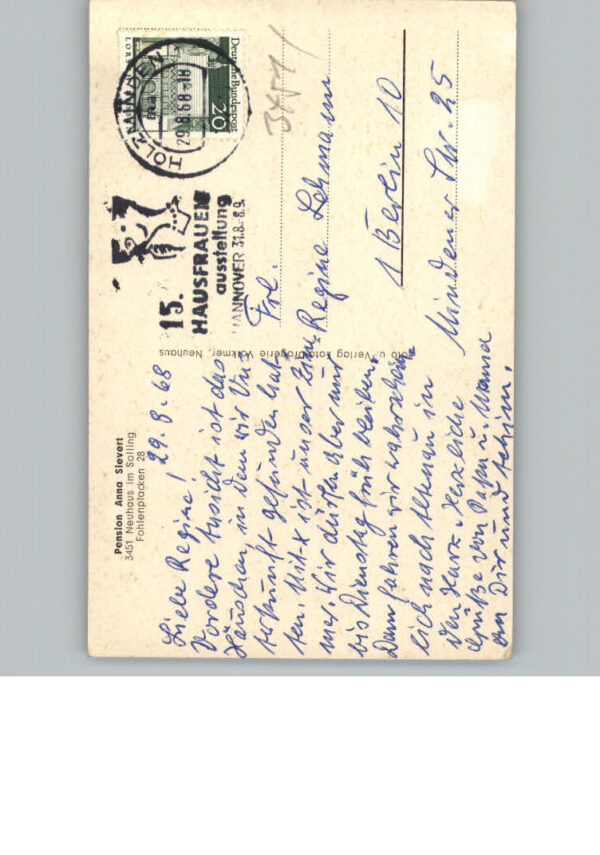 Pension Anna Sievert
3451 Neuhaus im Solling
Fohlenplacken 28
29.8.68
Liebe Regine!
Vordere Ansicht ist das
Häuschen, in dem wir Un
terkunft gefunden hat-
ten. Mit X ist unser Zim-
mer. Wir dürfen aber nur
bis Dienstag früh bleiben,
Dann fahren wir wahrschein-
lich noch in
den Harz. Herzliche
Grüße von Pappi u. Mama
an Dir und
Foto u. Verlag Fotodrogerie Volkmer, Neuhaus
HOLZMINDEN
29.8.68-18
Deutsche Bundespost
20
LORS
15.
HAUSFRAUEN
ausstellung
HANNOVER 31.8.-8.9.
3451/
Frl.
Regine Lehmann
1 Berlin 10
Mindener Str. 25